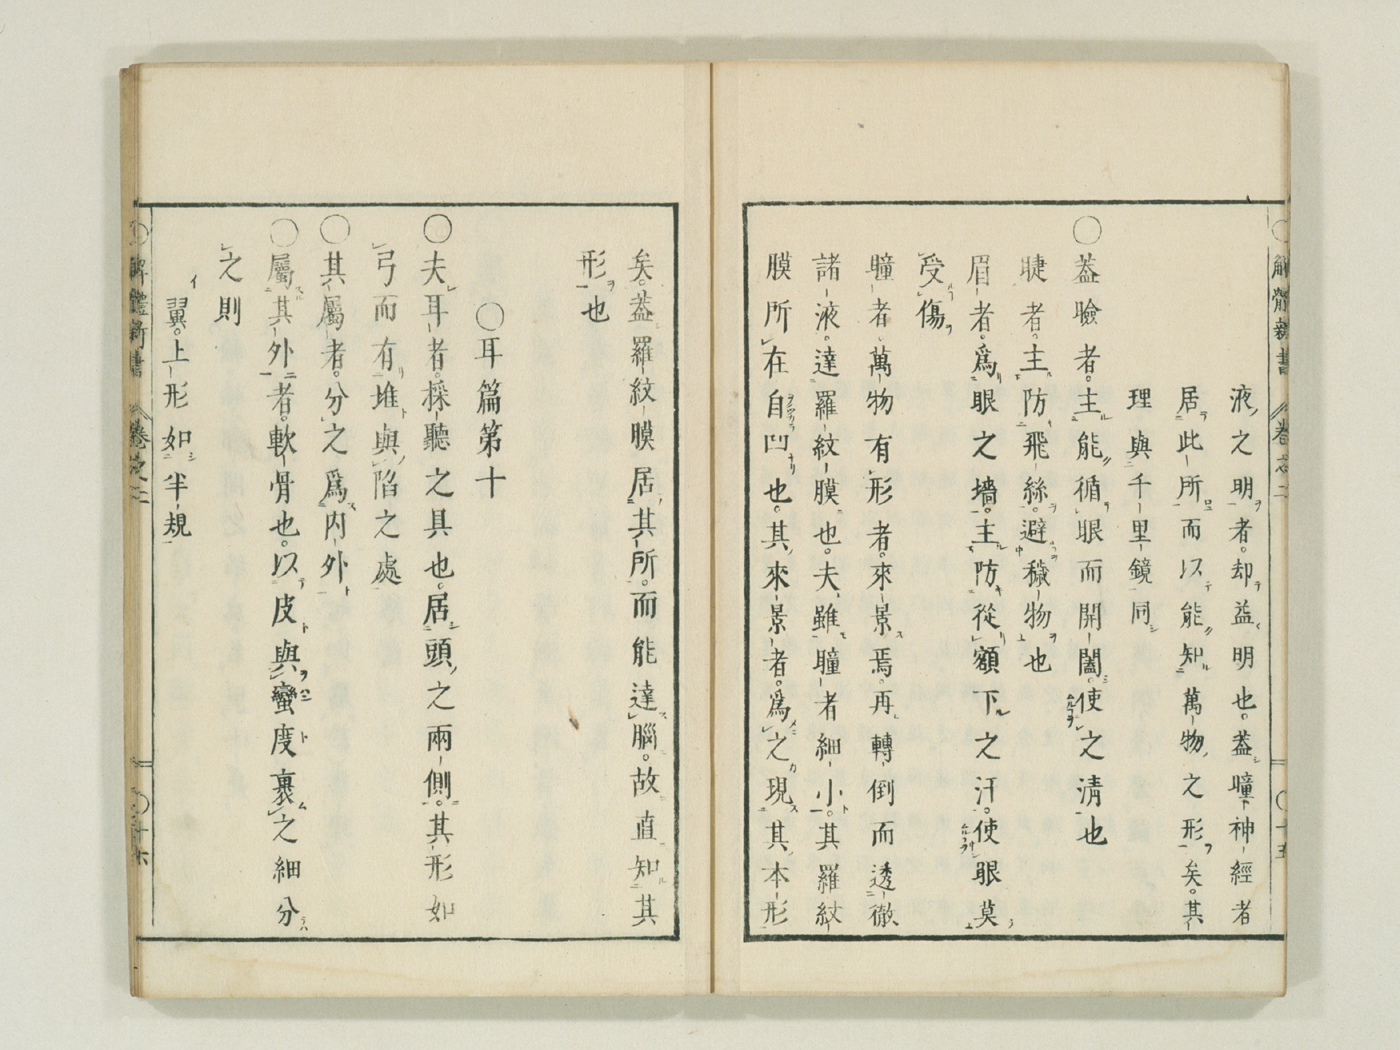 液之明者。却益明也。蓋瞳神経者
居此所而以能知萬物之形矣。其
理與千里鏡同
〇蓋瞼者。主能循眼而開闔。使之淸也
睫者。主防飛絲。避穢物也
眉者。爲眼之墻。主防從額下之汗。使眼莫
受傷
瞳者。萬物有形者。來景焉。再轉倒而透徹
諸液。達羅紋膜也。夫雖瞳者細小。其羅紋
膜所在自凹也。其來景者。爲之現其本形
解體新書 卷之二 〇十五
矣。蓋羅紋膜居其所。而能達腦。故直知其
形也
〇耳篇第十
〇夫耳者。採聽之具也。居頭之兩側。其形如
弓而有堆與陷之處
〇其屬者。分之爲内外
〇屬其外者。軟骨也。以皮與蠻度裹之細分
之則
翼。上形如半規
解體新書 卷之二 〇十六